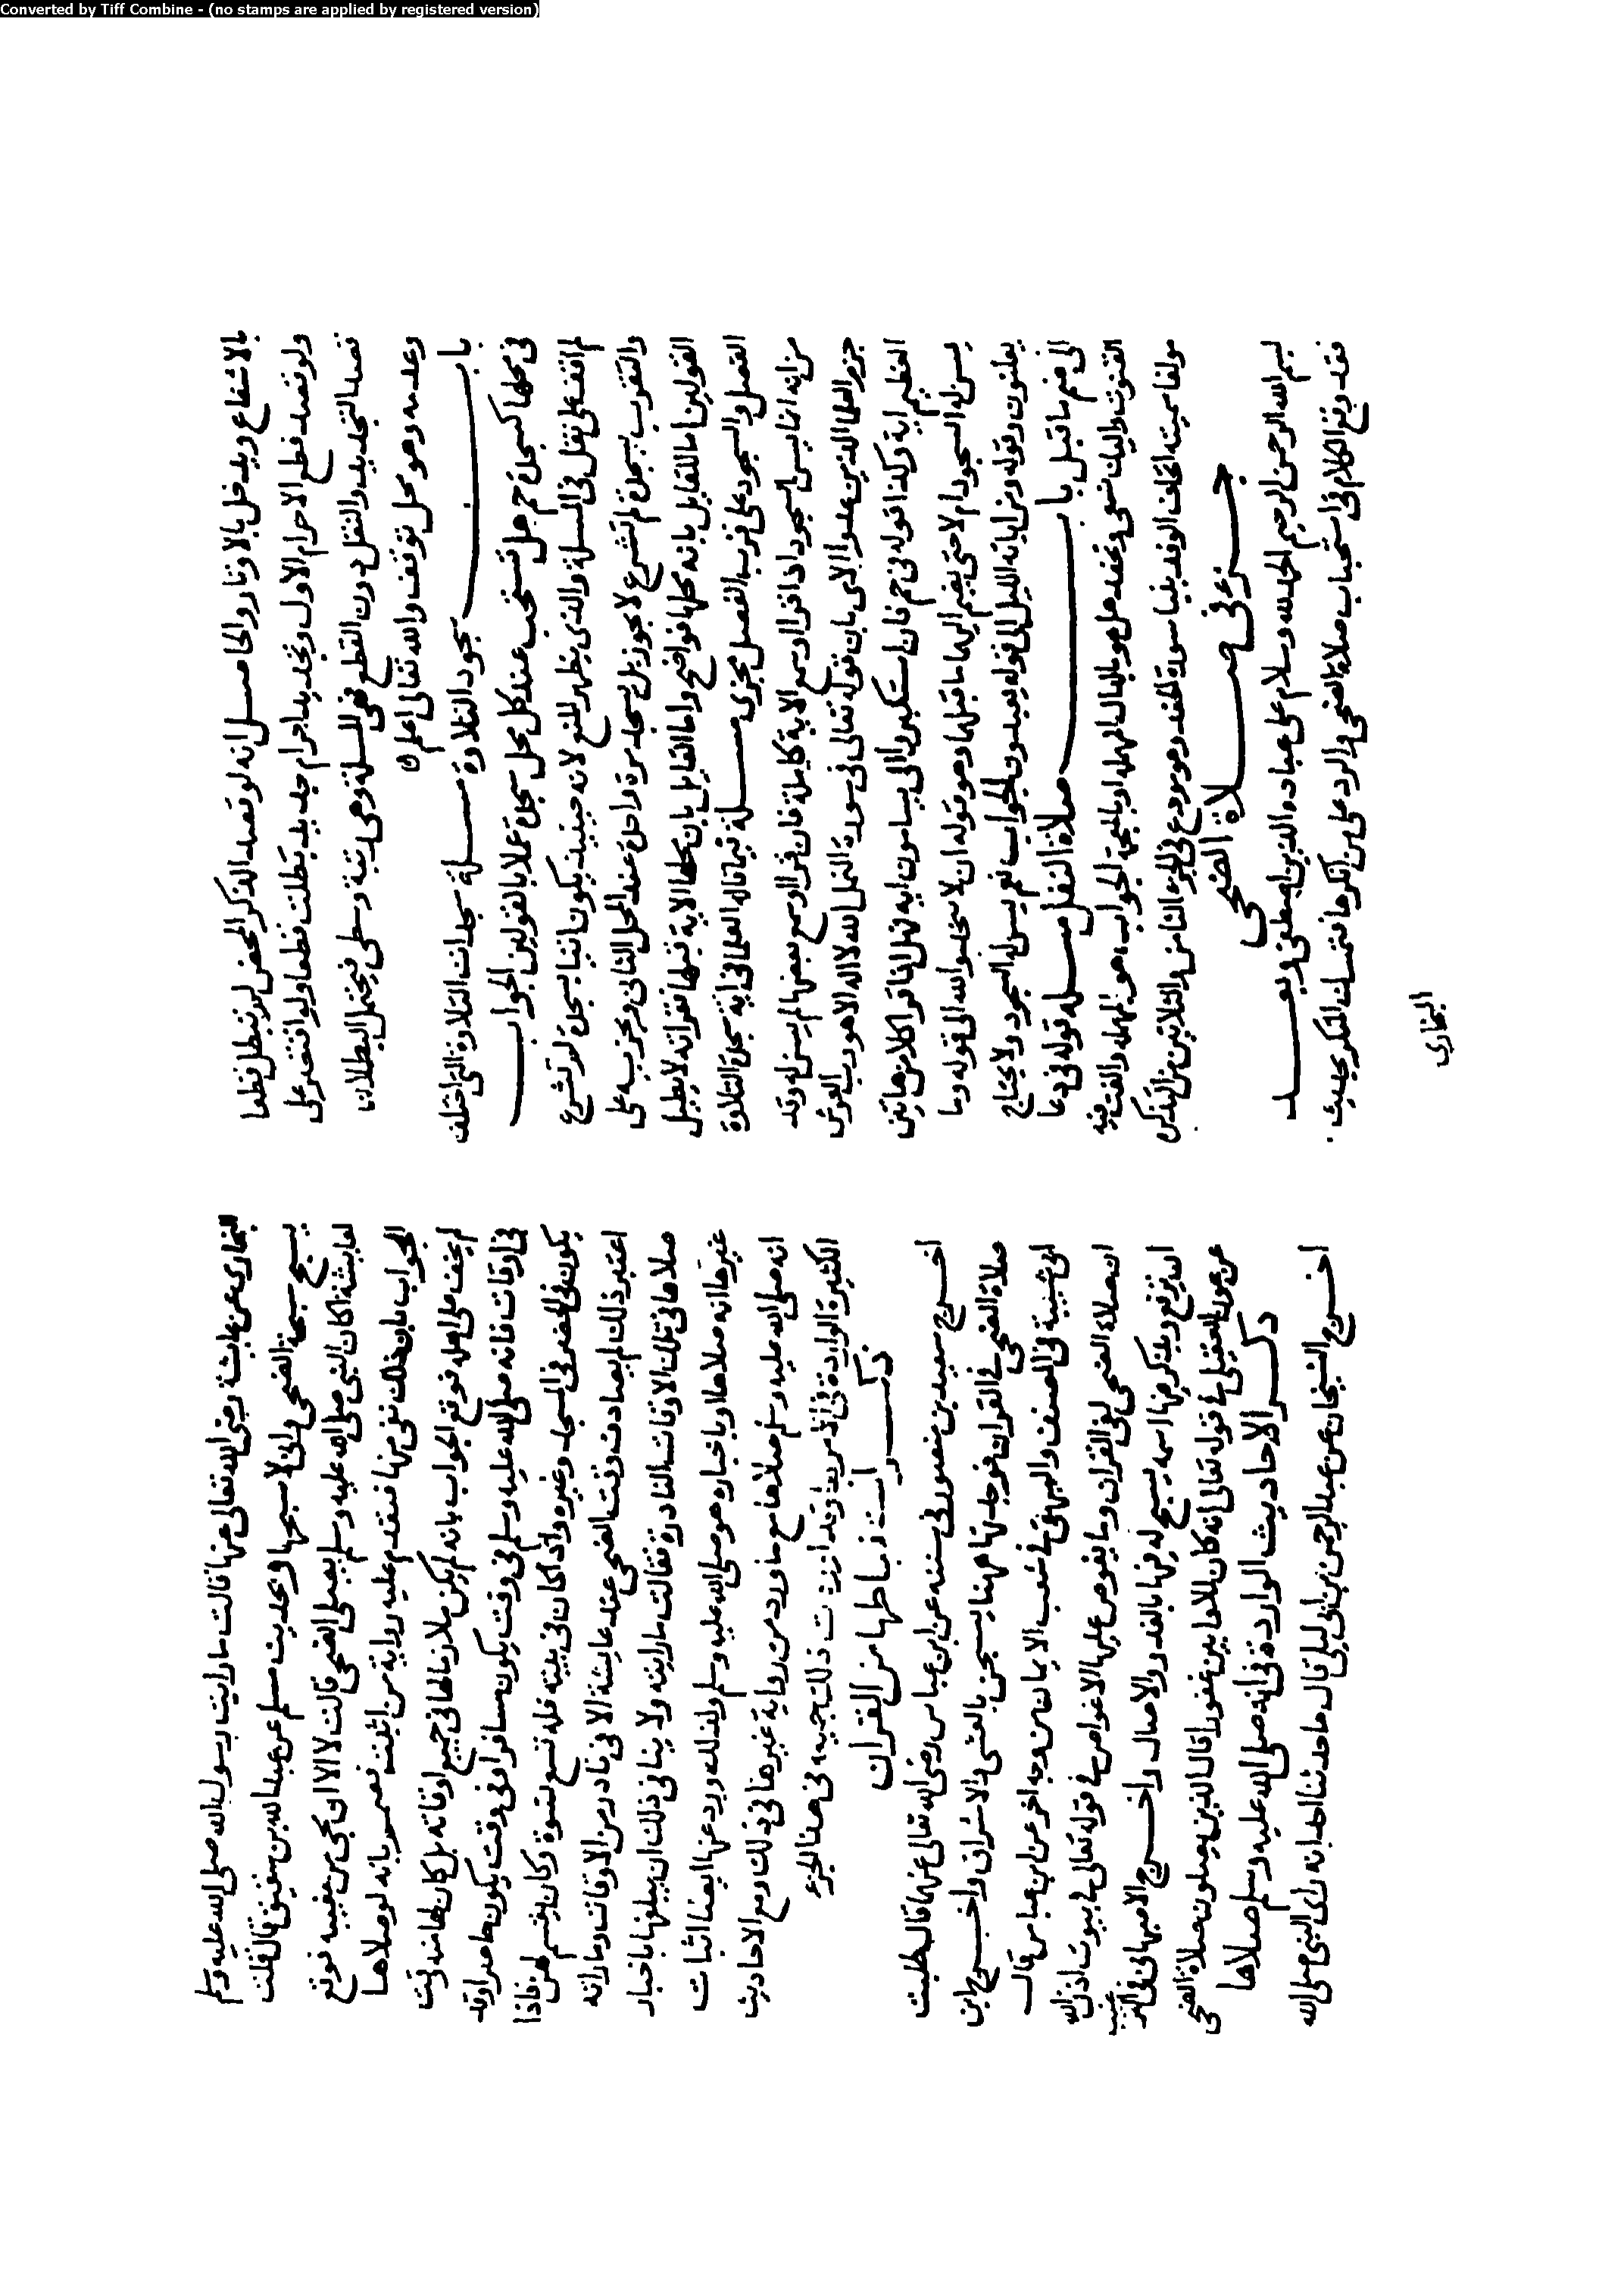 Converted by Tiff Combine - (no stamps are applied by registered version)
بالاشفاع ويدخل بالاوتار والحاصل انه لو قصد الذكر المحض لم تبطل قطعا
ولو قصد قطع الاحرام الاول وتجديد احرام جديد بطلت قطعا ولو اقتصر على
قصد التجديد والنقل دون القطع فهي المسلة وهي رتبة وسطى فيحتمل البطلان
وعدمه وهو محل توقف والله تعالى اعلم
باب سجود التلاوة مسلة سجدات التلاوة التي اختلف
في محلها كسجدة حم هل تستحب عند كل محل سجدة عملا بالقولين الجواب
لم اقف على نقل في المسلة والذي يظهر المنع لانه حينيذ يكون اتيا بسجدة لم تشرع
والتقرب بسجدة لم تشرع لا يجوز بل يسجد مرة واحدة عند المحل الثاني وتجزيه على
القولين اما القايل بانه محلها فواضح واما القايل بان محلها الاية قبلها فقراة اية لا يطيل
الفصل والسجود على قرب الفصل مجزي مسلة فيما قاله العلما في اية سجدة التلاوة
من انه انما يسن السجود اذا قرا او سمع الاية كاملة فان قرا او سمع بعضها لم يسن له وقد
جزم العلما الذين عدوا الاى بان قوله تعالى في سورة النمل الله لا اله الا هو رب العرش
العظيم اية وكذا قوله في حم فان استكبروا الى يسامون اية فهل اذا قرا كلا من هاتين
يسن له السجود ام لا حتى يضم اليهما ما قبلهما وهو قوله ان لا يسجدوا لله الى قوله وما
يعلنون وقوله ومن اياته الليل الى قوله يعبدون الجواب نعم يسن له السجود ولا يحتاج
الى ضم ما قبل باب صلاة النفل مسلة قوله في دعا
القنوت واليك نسعى ونحفد هل هو بالدال المهملة او بالمعجمة الجواب هو بالمهملة والفت فيه
مولفا سميته اتحاف الوفد بنبا سورة الحفد وهو مودع في الجزء الثامن والثلاثين من التذكرة
جزء في صلاة الضحى
بسم الله الرحمن الرحيم الحمد لله وسلام على عباده الذين اصطفى وبعد
فقد وقع الكلام في استحباب صلاة الضحى والرد على من انكرها فتمسك المنكر بحديث
البخاري
البخاري عن عايشة رضي الله تعالى عنها قالت ما رايت رسول الله صلى الله عليه وسلم
يسبح سبحة الضحى واني لا سبحها وبحديث مسلم عن عبد الله بن شقيق قال قلت
لعايشة اكان النبي صلى الله عليه وسلم يصلي الضحى قالت لا الا ان يجي من مغيبه فوقع
الجواب بان ذلك نفى منها فتقدم عليه رواية من اثبت فصمم بانه لو صلاها
لم يخف على اهله فوقع الجواب بانه لم يكن ملازما لها في جميع اوقاته بل كان لها منه وقت
في اوقات فانه صلى الله عليه وسلم في وقت يكون مسافرا وفي وقت يكون حاضرا وقد
يكون في الحضر في المسجد وغيره واذا كان في بيته فله تسع نسوة وكان يقسم لهن فاذا
اعتبر ذلك لم يصادف وقت الضحى عند عايشة الا في نادر من الاوقات وما راته
صلاها في تلك الاوقات النادرة فقالت ما رايته ولا ينافي ذلك ان يبلغها باخبار
غيرها انه صلاها او باخباره هو صلى الله عليه وسلم ولذلك ورد عنها ايضا اثبات
انه صلى الله عليه وسلم صلاها مع ما ورد من رواية غيرها في ذلك ومع الاحاديث
الكثيرة الواردة في الامر بها وقد افردت ذلك جميعه في هذا الجزء
ذكر استنباطها من القران
اخرج سعيد بن منصور في سننه عن ابن عباس رضي الله تعالى عنهما قال طلبت
صلاة الضحى في القران فوجدتها ههنا يسبحن بالعشي والاشراق واخرج ابن
ابي شيبة في المصنف والبيهقي في شعب الايمان من وجه اخر عن ابن عباس قال
ان صلاة الضحى لفي القران وما يغوص عليها الا غواص في قوله تعالى في بيوت اذن الله
ان ترفع ويذكر فيها اسمه يسبح له فيها بالغدو والاصال واخرج الاصبهاني في الترغيب
عن عون العقيلي في قوله تعالى انه كان للاوابين غفورا قال الذين يصلون صلاة الضحى
ذكر الاحاديث الواردة في انه صلى الله عليه وسلم صلاها
اخرج الشيخان عن عبد الرحمن بن ابي ليلى قال ما حدثنا احد انه راى النبي صلى الله